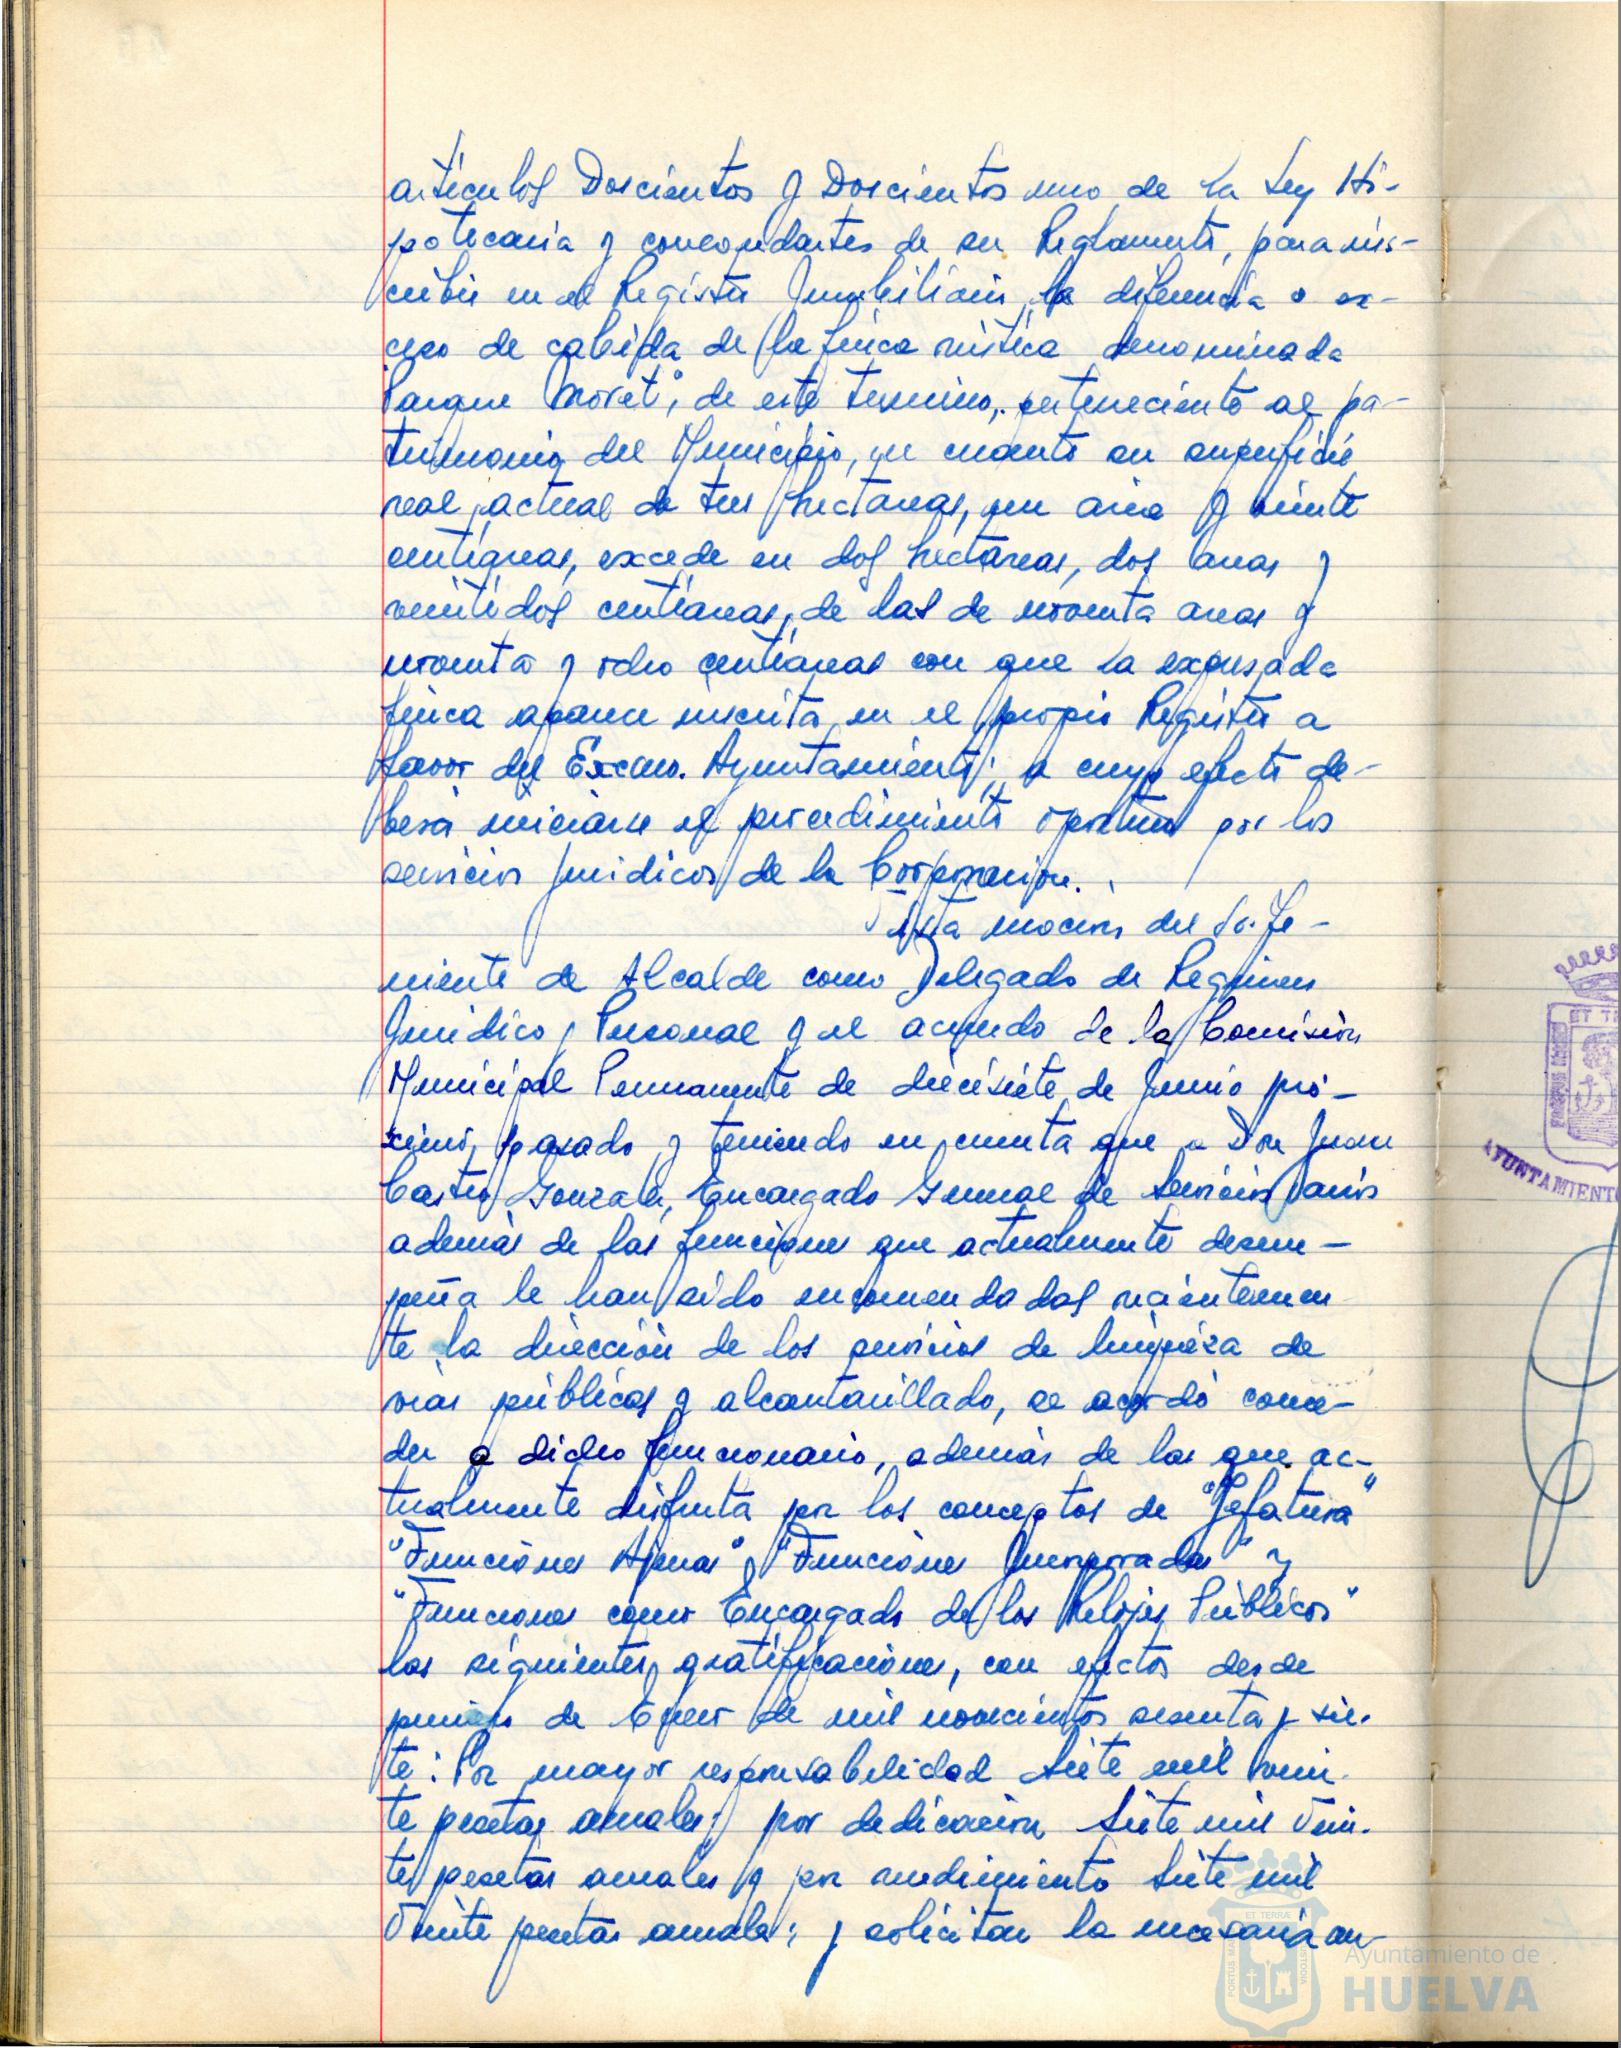 artículos Doscientos y Doscientos uno de la Ley Hi-
potecaria y concordantes de su Reglamento, para ins-
cribir en el Registro Inmobiliario, la diferencia o ex-
ceso de cabida de la finca rústica denominada
"Parque Moret", de este término, perteneciente al pa-
trimonio del Municipio, en cuanto su superficie
real, actual de tres hectareas, un area y veinte
centiareas, excede en dos hectáreas, dos areas y
veintidos centiareas, de las de noventa areas y
noventa y ocho centiareas con que la expresada
finca aparece inscrita en el propio Registro a
favor del Excmo. Ayuntamiento; a cuyo efecto de-
berá iniciarse el procedimiento oportuno por los
servicios jurídicos de la Corporacion.
Vista mocion del Sr. Te-
niente de Alcalde como Delegado de Regimen
Jurídico y Personal y el acuerdo de la Comisión
Municipal Permanente de diecisiete de Junio pró-
ximo pasado y teniendo en cuenta que a Don Juan
Castro Gonzalez, Encargado General de Servicios Varios
además de las funciones que actualmente desem-
peña le han sido encomendadas recientemen
te la dirección de los servicios de limpieza de
vías públicas y alcantarillado, se acordó conce-
der a dicho funcionario, además de las que ac-
tualmente disfruta por los conceptos de "Jefatura"
"Funciones Ajenas" y "Funciones Incorporadas" y
"Funciones como Encargado de los Relojes Públicos"
las siguientes gratificaciones, con efectos desde
primero de Enero de mil novecientos sesenta y sie-
te: Por mayor responsabilidad Siete mil vein-
te pesetas anuales; por dedicacion Siete mil vein-
te pesetas anuales y por rendimiento Siete mil
veinte pesetas anuales; y solicitar la necesaria au-
AYUNTAMIENTO
ET TERRAE
PORTUS MARIS
CUSTODIA
Ayuntamiento de
HUELVA